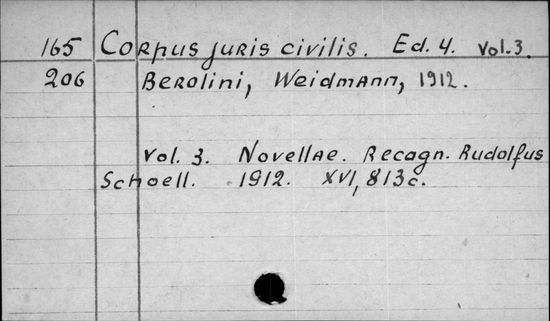 165 Corpus juris civilis. Ed. 4. Vol. 3.
206 Berolini, Weidmann, 1912.
Vol. 3. Novellae. Recogn. Rudolfus
Schoell. 1912. XVI, 813c.